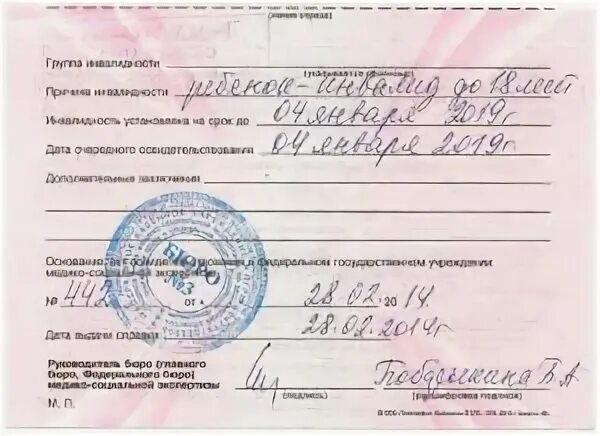 Группа инвалидности
(указывается прописью)
Причина инвалидности ребенок-инвалид до 18 лет
Инвалидность установлена на срок до 04 января 2019г
Дата очередного освидетельствования 04 января 2019г
Дополнительные заключения
Основание: в федеральном государственном учреждении
медико-социальной экспертизы
№ 442 от 28.02. 2014.
БЮРО
№3
Дата выдачи справки 28.02.2014г
Руководитель бюро (главного
бюро, Федерального бюро)
медико-социальной экспертизы
(подпись) (расшифровка подписи)
М. П.